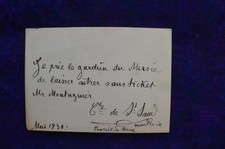 Je prie le gardien du Musée
de laisser entrer sans ticket
Mr. Montuzmier
Cte de St Saud
Mai 1931.